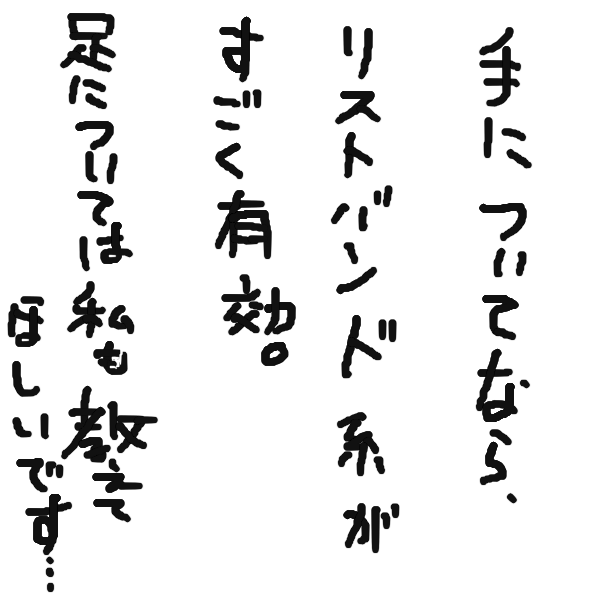 手についてなら、
リストバンド系が
すごく有効。
足については私も教えて
ほしいです…